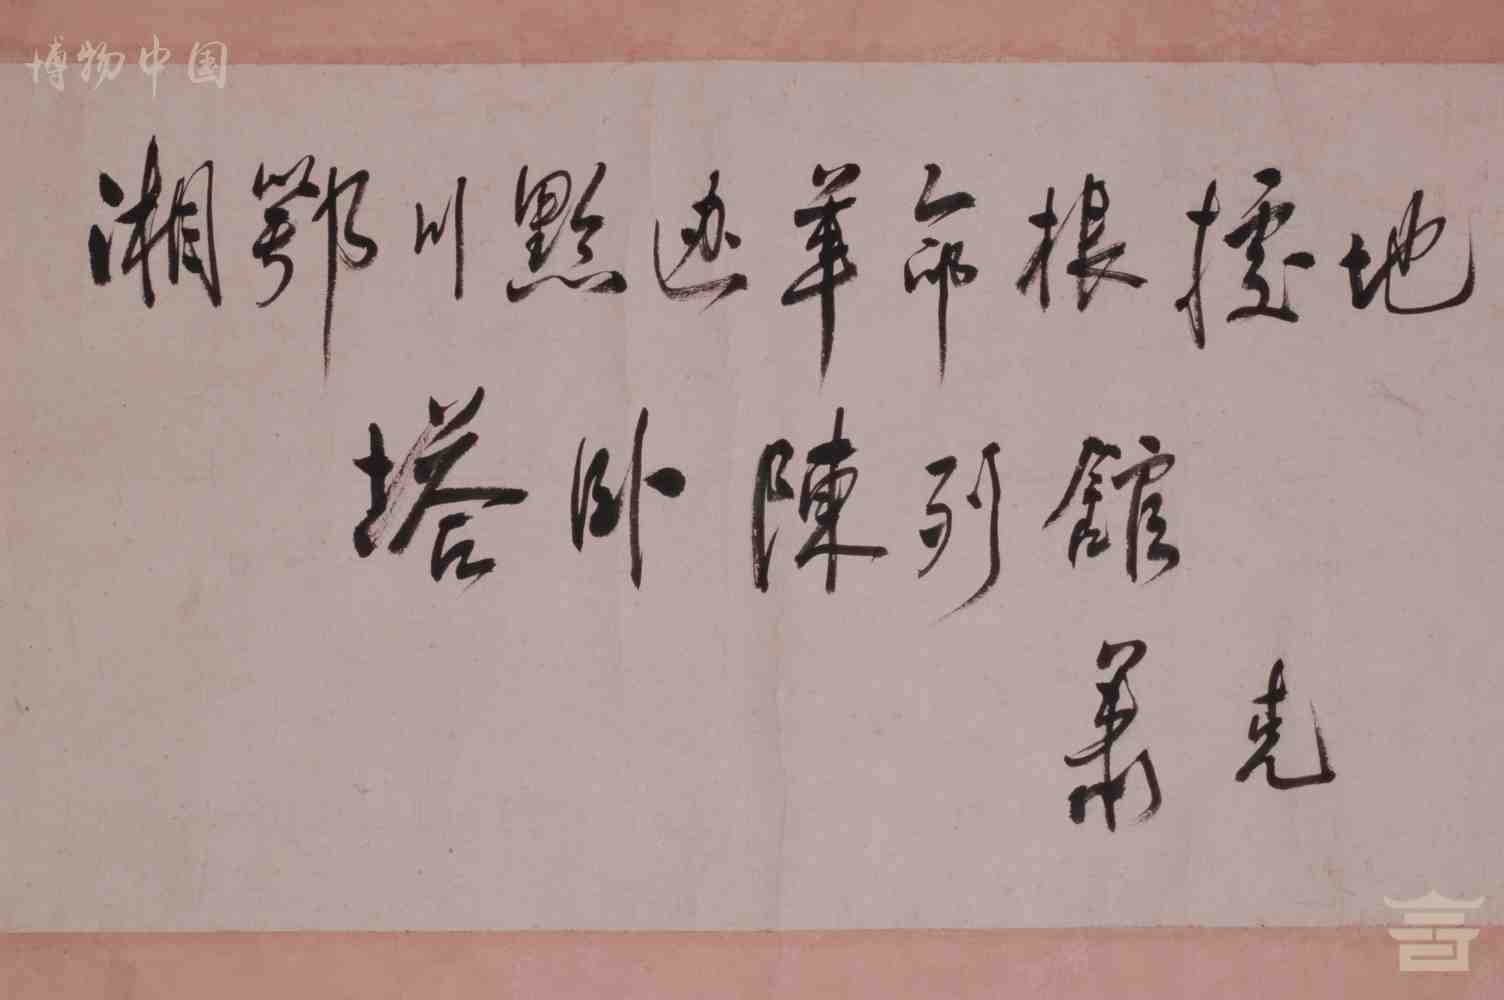 博物中国
湘鄂川黔边革命根據地
塔卧陳列館
萧克